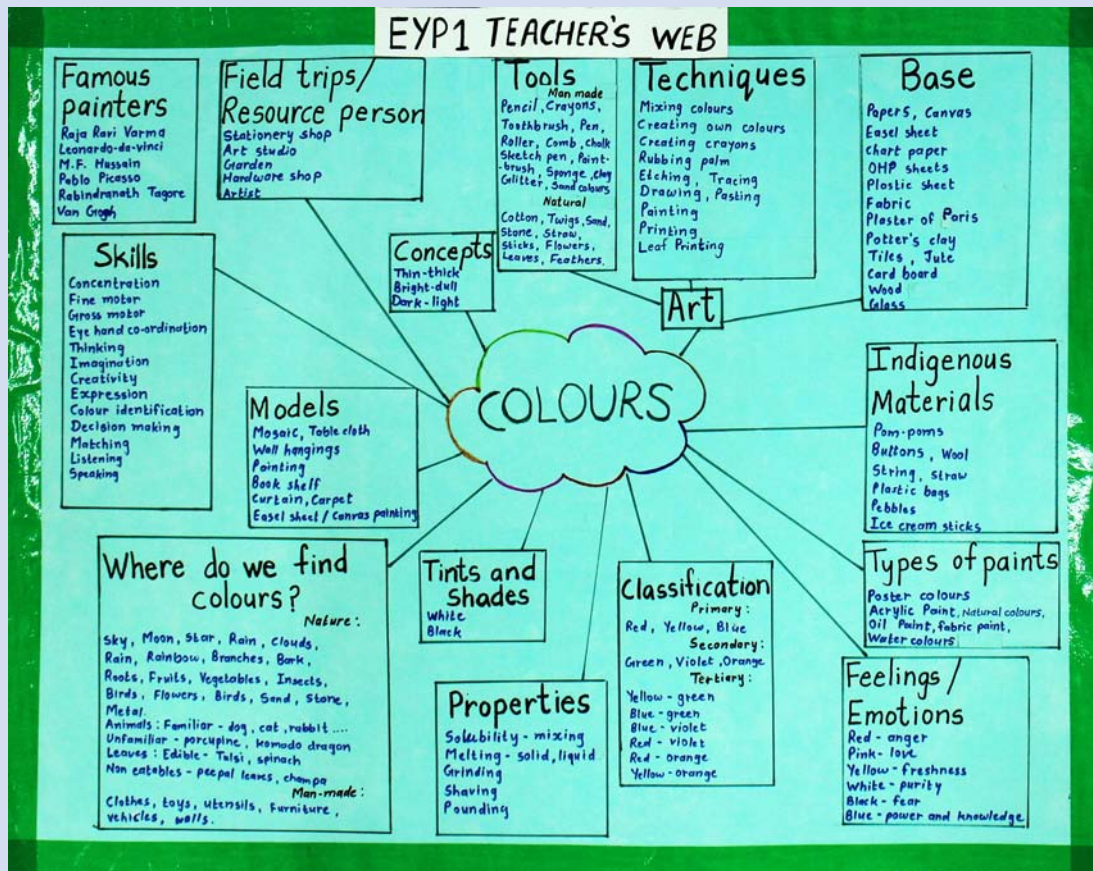 EYP1 TEACHER'S WEB
Famous
painters
Raja Ravi Varma
Leonardo-da-vinci
M.F. Hussain
Pablo Picasso
Rabindranath Tagore
Van Grogh
Field trips/
Resource person
Stationery shop
Art studio
Garden
Hardware shop
Artist
Tools
Man made
Pencil, Crayons,
Toothbrush, Pen,
Roller, Comb, Chalk
Sketch pen, Paint-
-brush, Sponge, Clay
Glitter, Sand colours
Natural
Cotton, Twigs, Sand,
Stone, Straw,
Sticks, Flowers,
Leaves, Feathers.
Techniques
Mixing colours
Creating own colours
Creating crayons
Rubbing palm
Etching, Tracing
Drawing, Pasting
Painting
Printing
Leaf Printing
Base
Papers, Canvas
Easel sheet
Chart paper
OHP sheets
Plastic sheet
Fabric
Plaster of Paris
Potter's clay
Tiles, Jute
Card board
Wood
Glass
Skills
Concentration
Fine motor
Gross motor
Eye hand co-ordination
Thinking
Imagination
Creativity
Expression
Colour identification
Decision making
Matching
Listening
Speaking
Concepts
Thin-thick
Bright-dull
Dark-light
Art
COLOURS
Models
Mosaic, Table cloth
Wall hangings
Painting
Book shelf
Curtain, Carpet
Easel sheet / Canvas painting
Indigenous
Materials
Pom-poms
Buttons, Wool
String, Straw
Plastic bags
Pebbles
Ice cream sticks
Where do we find
colours?
Nature:
Sky, Moon, Star, Rain, Clouds,
Rain, Rainbow, Branches, Bark,
Roots, Fruits, Vegetables, Insects,
Birds, Flowers, Birds, Sand, Stone,
Metal.
Animals: Familiar - dog, cat, rabbit ....
Unfamiliar - porcupine, komodo dragon
Leaves: Edible - Tulsi, spinach
Non eatables - peepal leaves, champa
Man-made:
Clothes, toys, utensils, furniture,
vehicles, walls.
Tints and
Shades
White
Black
Properties
Solubility - mixing
Melting - solid, liquid
Grinding
Shaving
Pounding
Classification
Primary:
Red, Yellow, Blue
Secondary:
Green, Violet, Orange
Tertiary:
Yellow - green
Blue - green
Blue - violet
Red - violet
Red - orange
Yellow - orange
Types of paints
Poster colours
Acrylic Paint, Natural colours,
Oil Paint, fabric paint,
Water colours
Feelings/
Emotions
Red - anger
Pink - love
Yellow - freshness
White - purity
Black - fear
Blue - power and knowledge